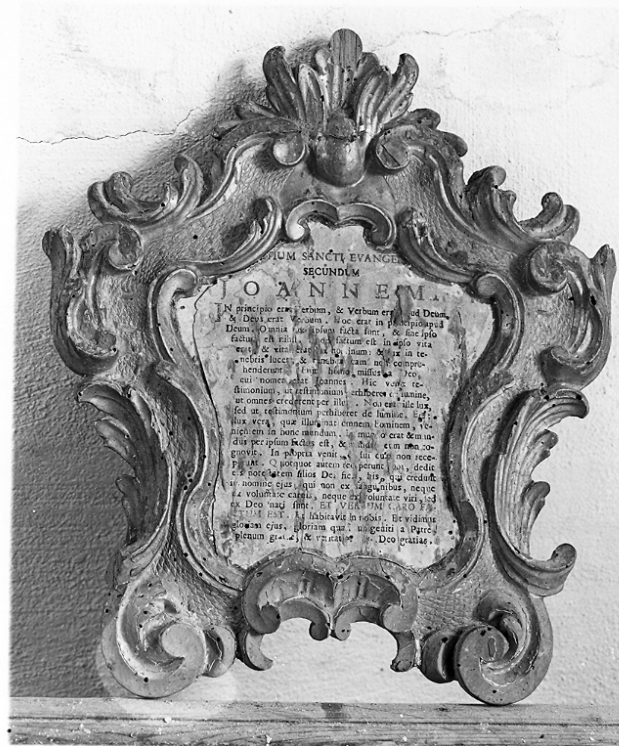 SANCTI EVANGE
SECUNDUM
JOANNEM.
IN principio erat Verbum, & Verbum erat apud Deum,
& Deus erat Verbum. Hoc erat in principio apud
Deum. Omnia per ipsum facta sunt, & sine ipso
factum est nihil, quod factum est in ipso vita
erat, & vita erat lux hominum: & lux in te-
nebris lucet, & tenebræ eam non compre-
henderunt. Fuit homo missus a Deo,
cui nomen erat Joannes. Hic venit te-
stimonium, ut testimonium perhiberet de lumine,
ut omnes crederent per illum. Non erat ille lux,
sed ut testimonium perhiberet de lumine. Erat
lux vera, quæ illuminat omnem hominem, ve-
nientem in hunc mundum. In mundo erat & mun-
dus per ipsum factus est, & mundus eum non co-
gnovit. In propria venit, & sui eum non rece-
perunt. Quotquot autem receperunt eum, dedit
eis potestatem filios Dei fieri, his, qui credunt
in nomine ejus, qui non ex sanguinibus, neque
ex voluntate carnis, neque ex voluntate viri, sed
ex Deo nati sunt. ET VERBUM CARO FA-
CTUM EST, & habitavit in nobis. Et vidimus
gloriam ejus, gloriam quasi unigeniti a Patre,
plenum gratiæ, & veritatis. Deo gratias.